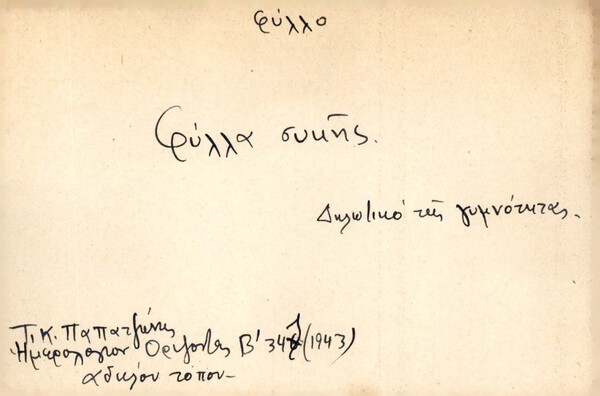 φύλλο
Φύλλα συκῆς.
Δηλωτικό τῆς γυμνότητας.
Τ.Κ. Παπατζώνης
Ημερολόγιον Ορίζοντες Β' 34 (1943)
αδήλου τόπου-